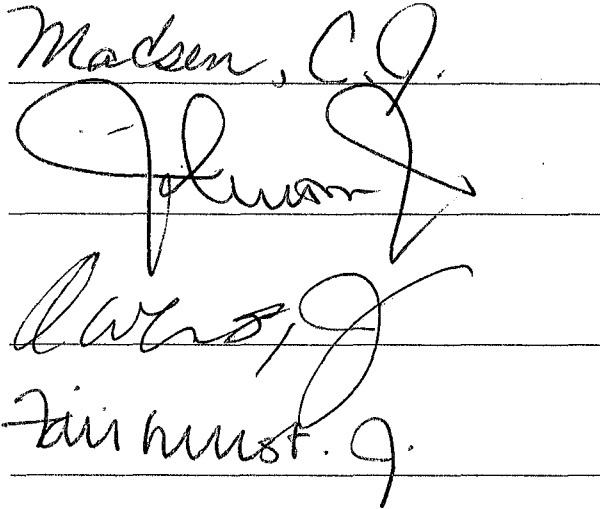 Madsen, C.J.
Johnson J
Owens, J
Fairhurst. J.